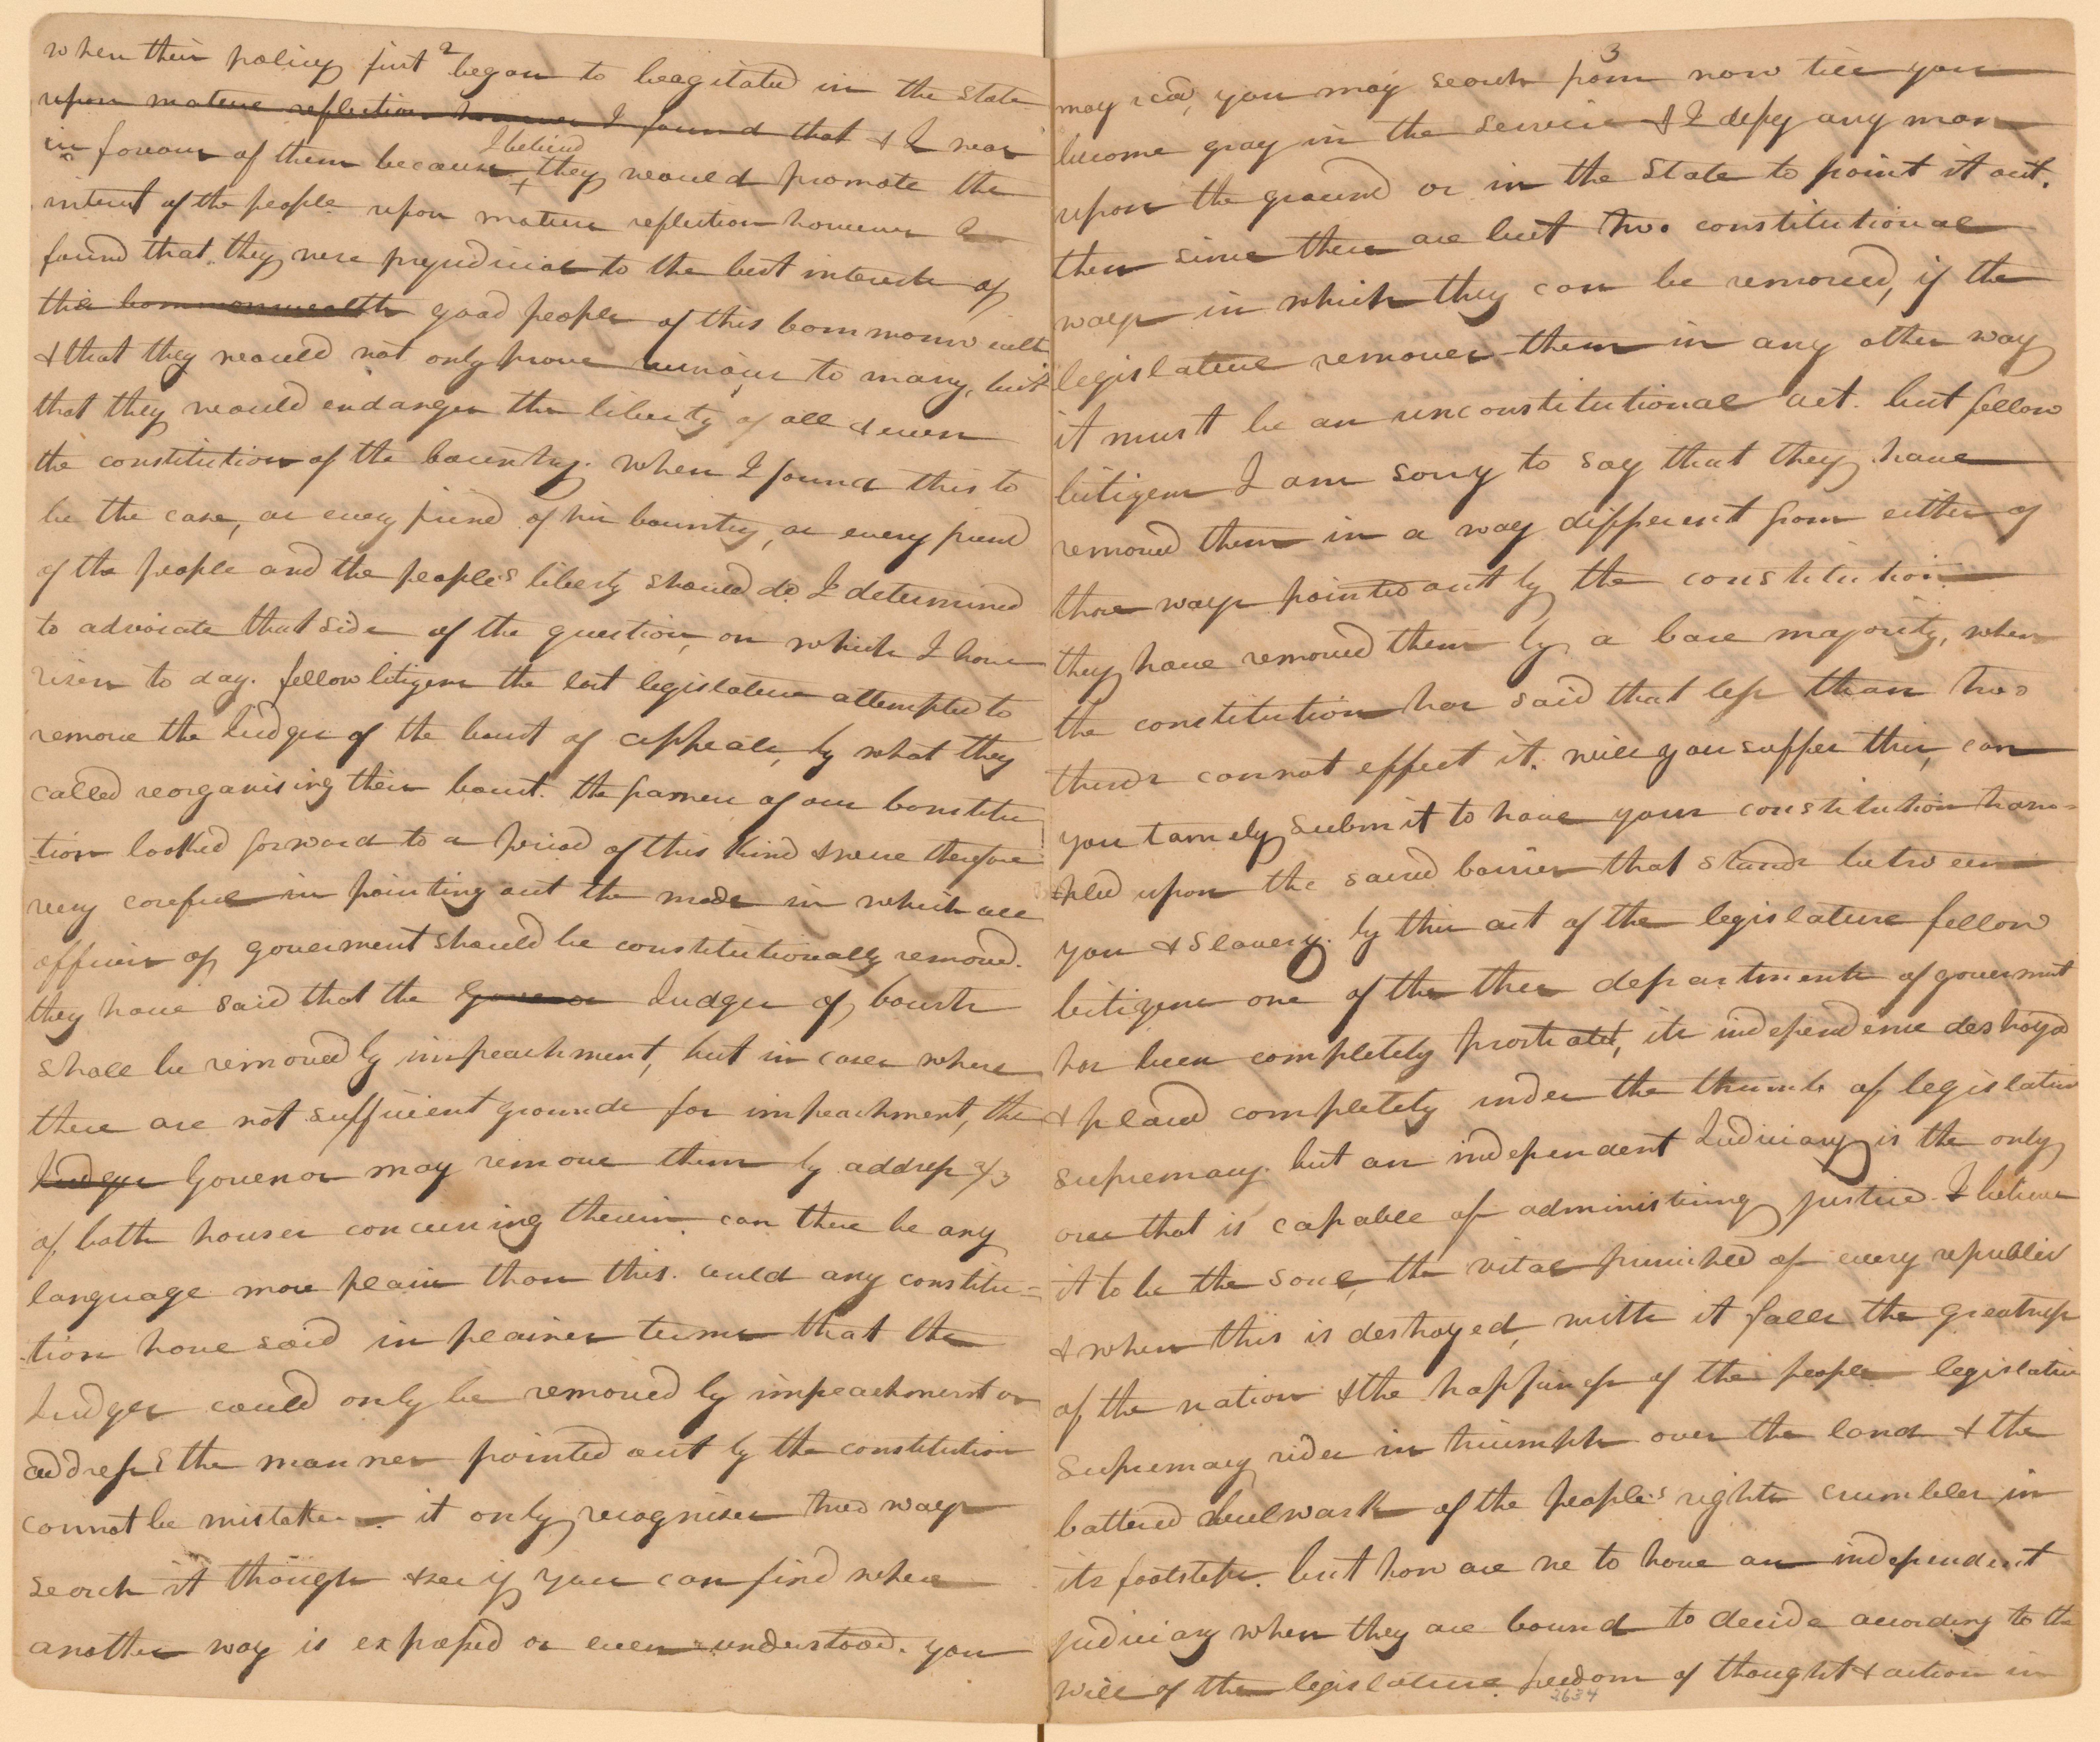 2
when their policy first began to be agitated in the State
upon mature reflection however I found that & I was
in favour of them because I believd they would promote the
interest of the people upon mature reflection however I
found that they were prejudicial to the best interests of
this Commonwealth good people of this Commonwealth
& that they would not only prove ruinous to many, but
that they would endanger the liberty of all & even
the constitution of the Country. When I found this to
be the case, as every friend of his Country, as every friend
of the people and the people's liberty should do I determined
to advocate that side of the question, on which I have
risen to day. fellow Citizens the last legislature attempted to
remove the Judges of the Court of Appeals, by what they
called reorganising their Court. the framers of our Constitu
=tion looked forward to a period of this kind & were therefore
very careful in pointing out the mode in which all
officers of goverment should be constitutionally removed.
they have said that the Govenor Judges of Courts
shall be removed by impeachment, but in cases where
there are not sufficient grounds for impeachment, the
Judges Govenor may remove them by address 2/3
of both houses concurring therein can there be any
language more plain than this. could any constitu=
=tion have said in plainer terms that the
Judges could only be removed by impeachment or
address the manner pointed out by the constitution
cannot be mistaken. it only recognises two ways
search it though & see if you can find where
another way is expressed or even understood. you
3
may read, you may search from now till you
become gray in the service & I defy any man
upon the ground or in the State to point it out.
then since there are but two constitutional
ways in which they can be removed, if the
legislature removes them in any other way
it must be an unconstitutional act. but fellow
Citizens I am sorry to say that they have
removed them in a way different from either of
those ways pointed out by the constitution
they have removed them by a bare majority, when
the constitution has said that less than two
thirds cannot effect it. will you suffer this, can
you tamely submit to have your constitution tram=
=pled upon the sacred barrier that stands between
you & slavery. by this act of the legislature fellow
Citizens one of the three departments of goverment
has been completely prostrated, its independence destroyd
& placed completely under the thumb of legislative
supremacy. but an independent Judiciary is the only
one that is capable of administering justice. I believe
it to be the soul, the vital principle of every republic
& when this is destroyed, with it falls the greatness
of the nation & the happiness of the people legislative
supremacy rides in triumph over the land & the
battered bulwark of the people's rights crumbles in
its footsteps. but how are we to have an independent
judiciary when they are bound to decide according to the
will of the legislature. freedom of thought & action in
2634